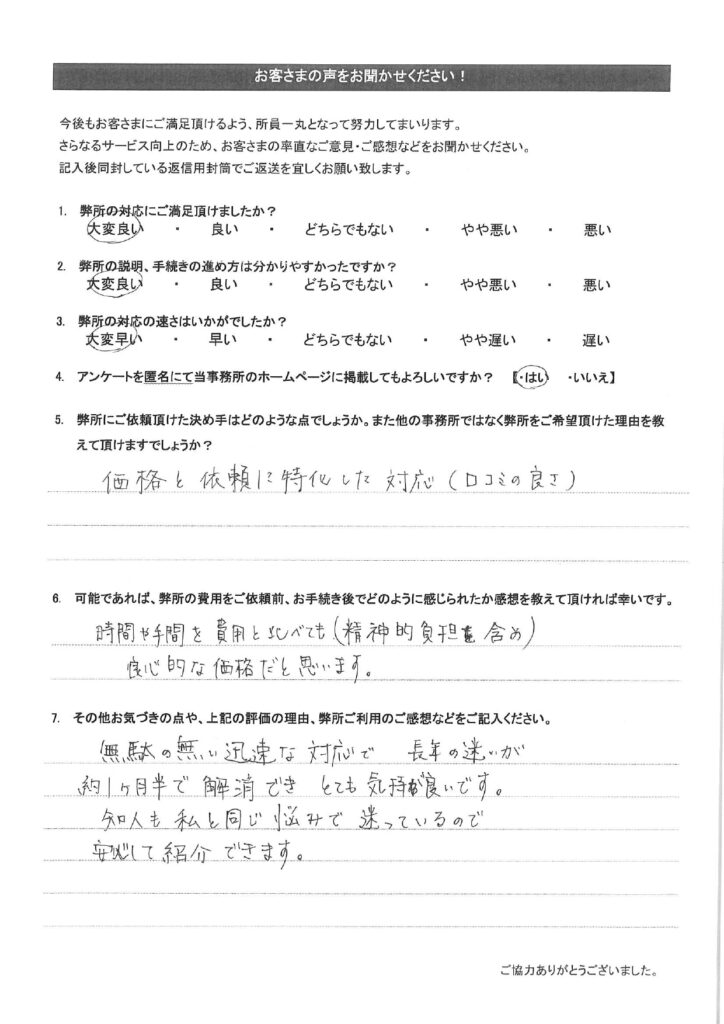 お客さまの声をお聞かせください！
今後もお客さまにご満足頂けるよう、所員一丸となって努力してまいります。
さらなるサービス向上のため、お客さまの率直なご意見・ご感想などをお聞かせください。
記入後同封している返信用封筒でご返送を宜しくお願い致します。
1. 弊所の対応にご満足頂けましたか？
大変良い ・ 良い ・ どちらでもない ・ やや悪い ・ 悪い
2. 弊所の説明、手続きの進め方は分かりやすかったですか？
大変良い ・ 良い ・ どちらでもない ・ やや悪い ・ 悪い
3. 弊所の対応の速さはいかがでしたか？
大変早い ・ 早い ・ どちらでもない ・ やや遅い ・ 遅い
4. アンケートを匿名にて当事務所のホームページに掲載してもよろしいですか？ 【・はい ・いいえ】
5. 弊所にご依頼頂けた決め手はどのような点でしょうか。また他の事務所ではなく弊所をご希望頂けた理由を教
えて頂けますでしょうか？
価格と依頼に特化した対応（口コミの良さ）
6. 可能であれば、弊所の費用をご依頼前、お手続き後でどのように感じられたか感想を教えて頂ければ幸いです。
時間や手間を費用と比べても（精神的負担を含め）
良心的な価格だと思います。
7. その他お気づきの点や、上記の評価の理由、弊所ご利用のご感想などをご記入ください。
無駄の無い迅速な対応で 長年の迷いが
約1ヶ月半で解消でき とても気持が良いです。
知人も私と同じ悩みで迷っているので
安心して紹介できます。
ご協力ありがとうございました。